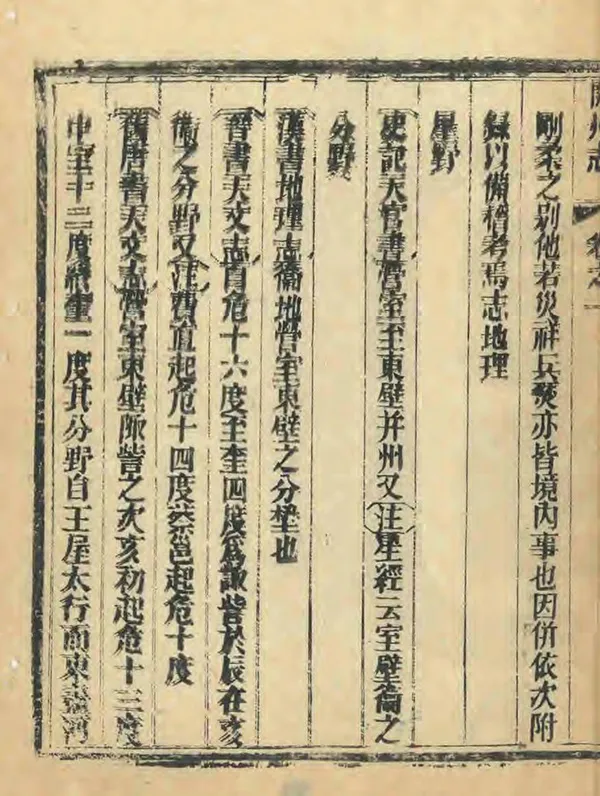 開州志 卷之一
剛柔之別他若災祥兵燹亦皆境內事也因併依次附
錄以備稽考焉志地理
星野
史記天官書營室至東壁并州又注星經云室壁衞之
分野
漢書地理志衞地營室東壁之分埜也
晉書天文志自危十六度至奎四度爲諏訾於辰在亥
衞之分野又注費直起危十四度蔡邕起危十度
舊唐書天文志營室東壁陬訾之次亥初起危十三度
中室十二度終奎一度其分野自王屋太行而東盡